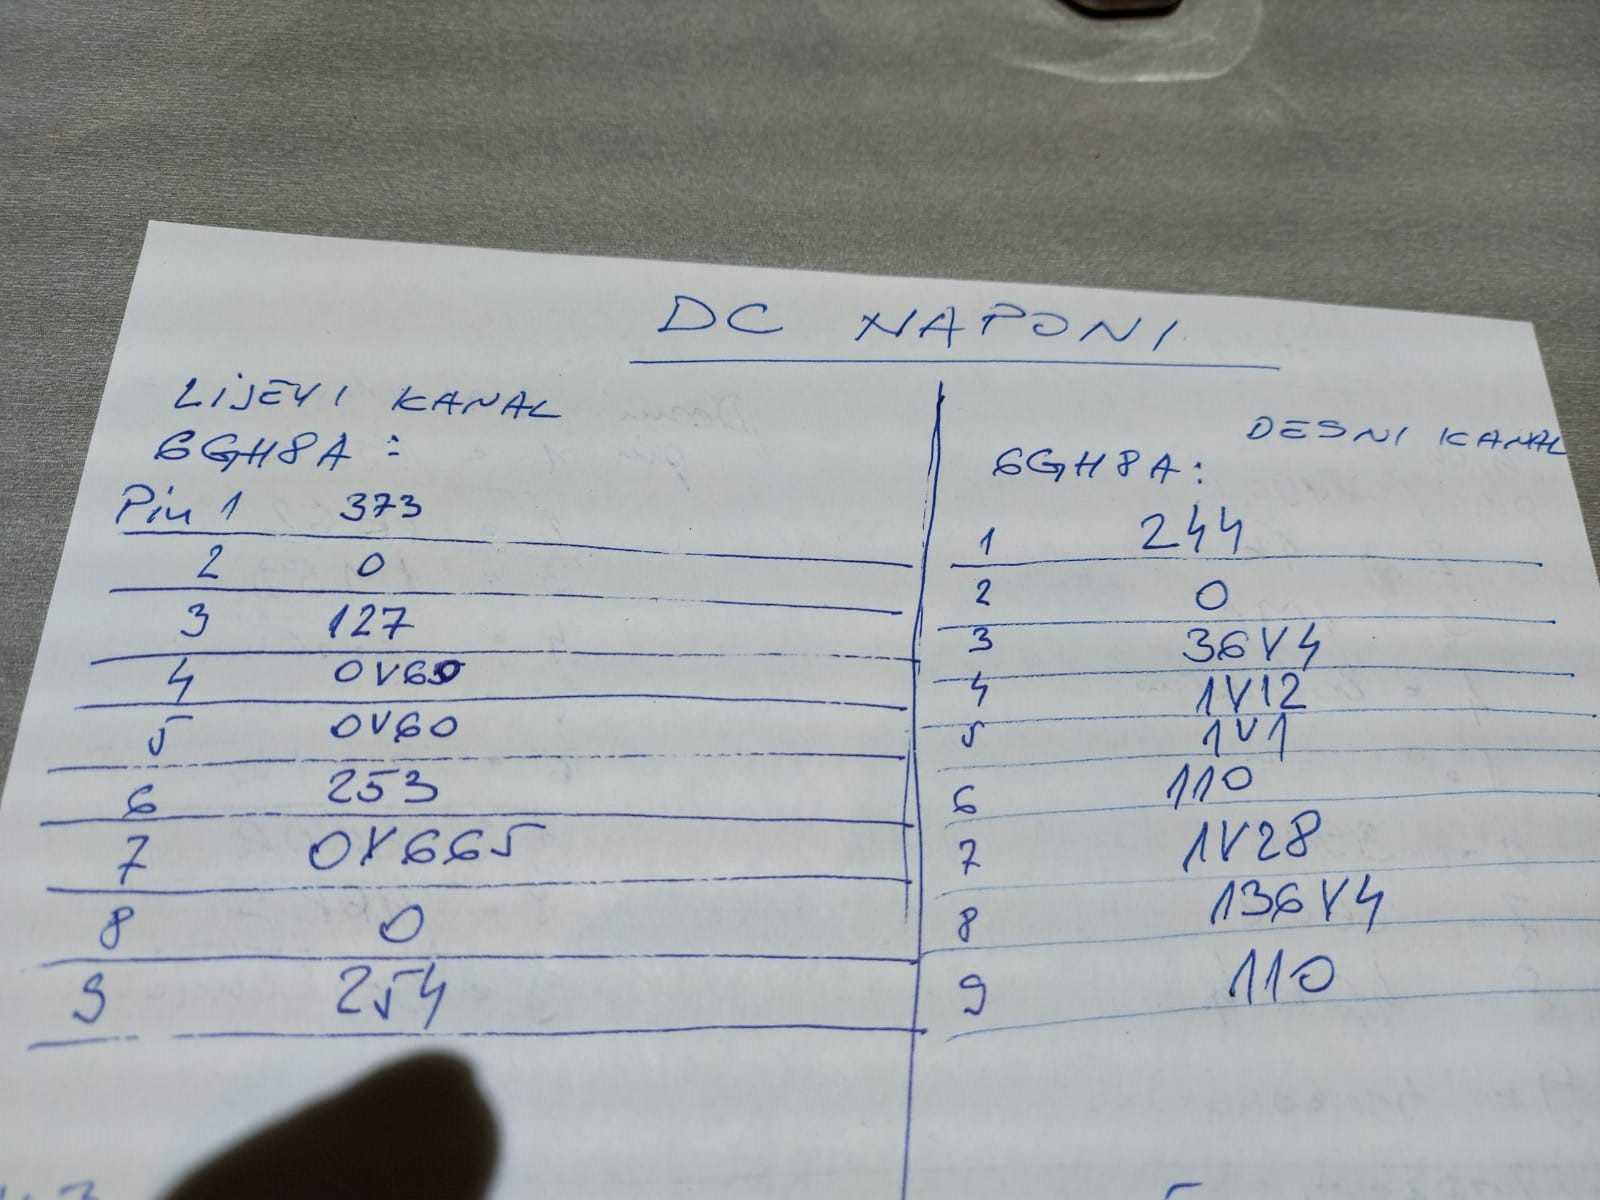 DC NAPONI
LIJEVI KANAL
6GH8A:
Pin 1 373
2 0
3 127
4 0V60
5 0V60
6 253
7 0V665
8 0
9 254
DESNI KANAL
6GH8A:
1 244
2 0
3 36V4
4 1V12
5 1V1
6 110
7 1V28
8 136V4
9 110